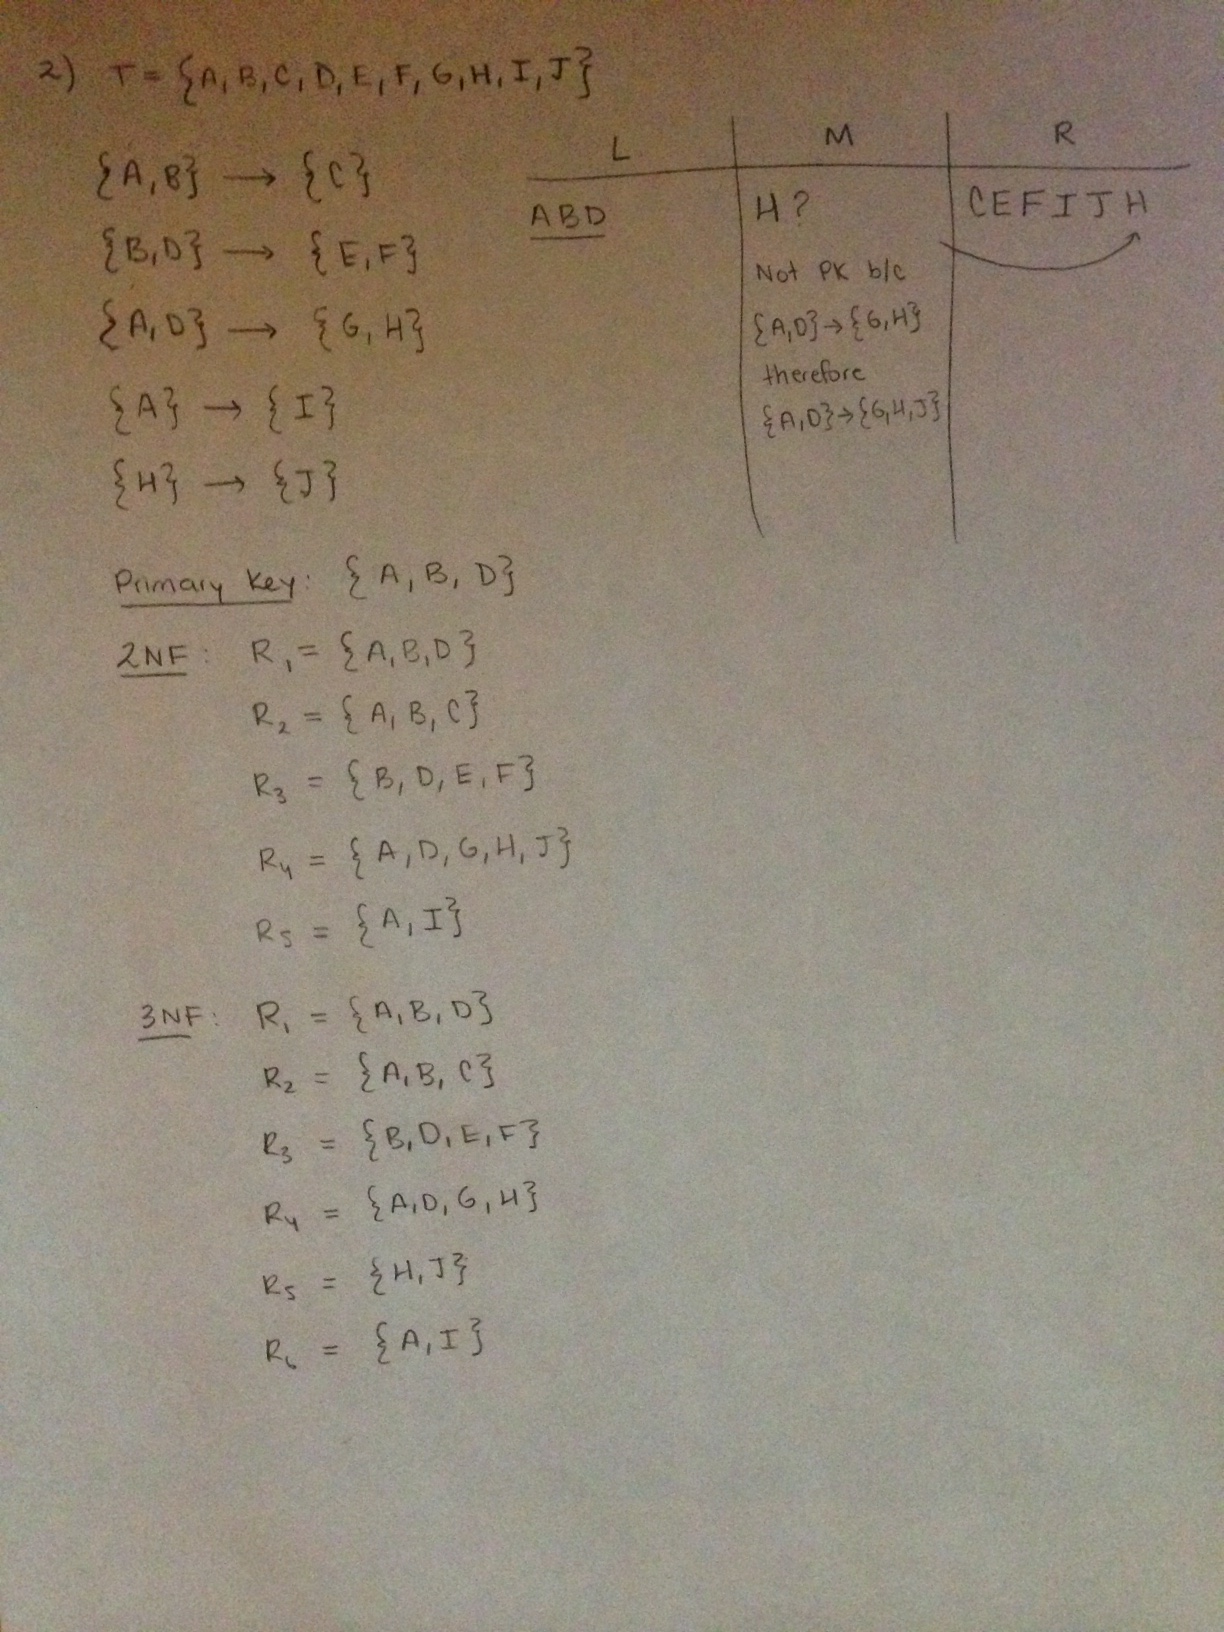 2) T = {A, B, C, D, E, F, G, H, I, J}
{A, B} → {C}
{B, D} → {E, F}
{A, D} → {G, H}
{A} → {I}
{H} → {J}
L M R
ABD H? CEFIJH
Not PK b/c
{A,D}→{G,H}
therefore
{A,D}→{G,H,J}
Primary Key: {A, B, D}
2NF: R1 = {A, B, D}
R2 = {A, B, C}
R3 = {B, D, E, F}
R4 = {A, D, G, H, J}
R5 = {A, I}
3NF: R1 = {A, B, D}
R2 = {A, B, C}
R3 = {B, D, E, F}
R4 = {A, D, G, H}
R5 = {H, J}
R6 = {A, I}